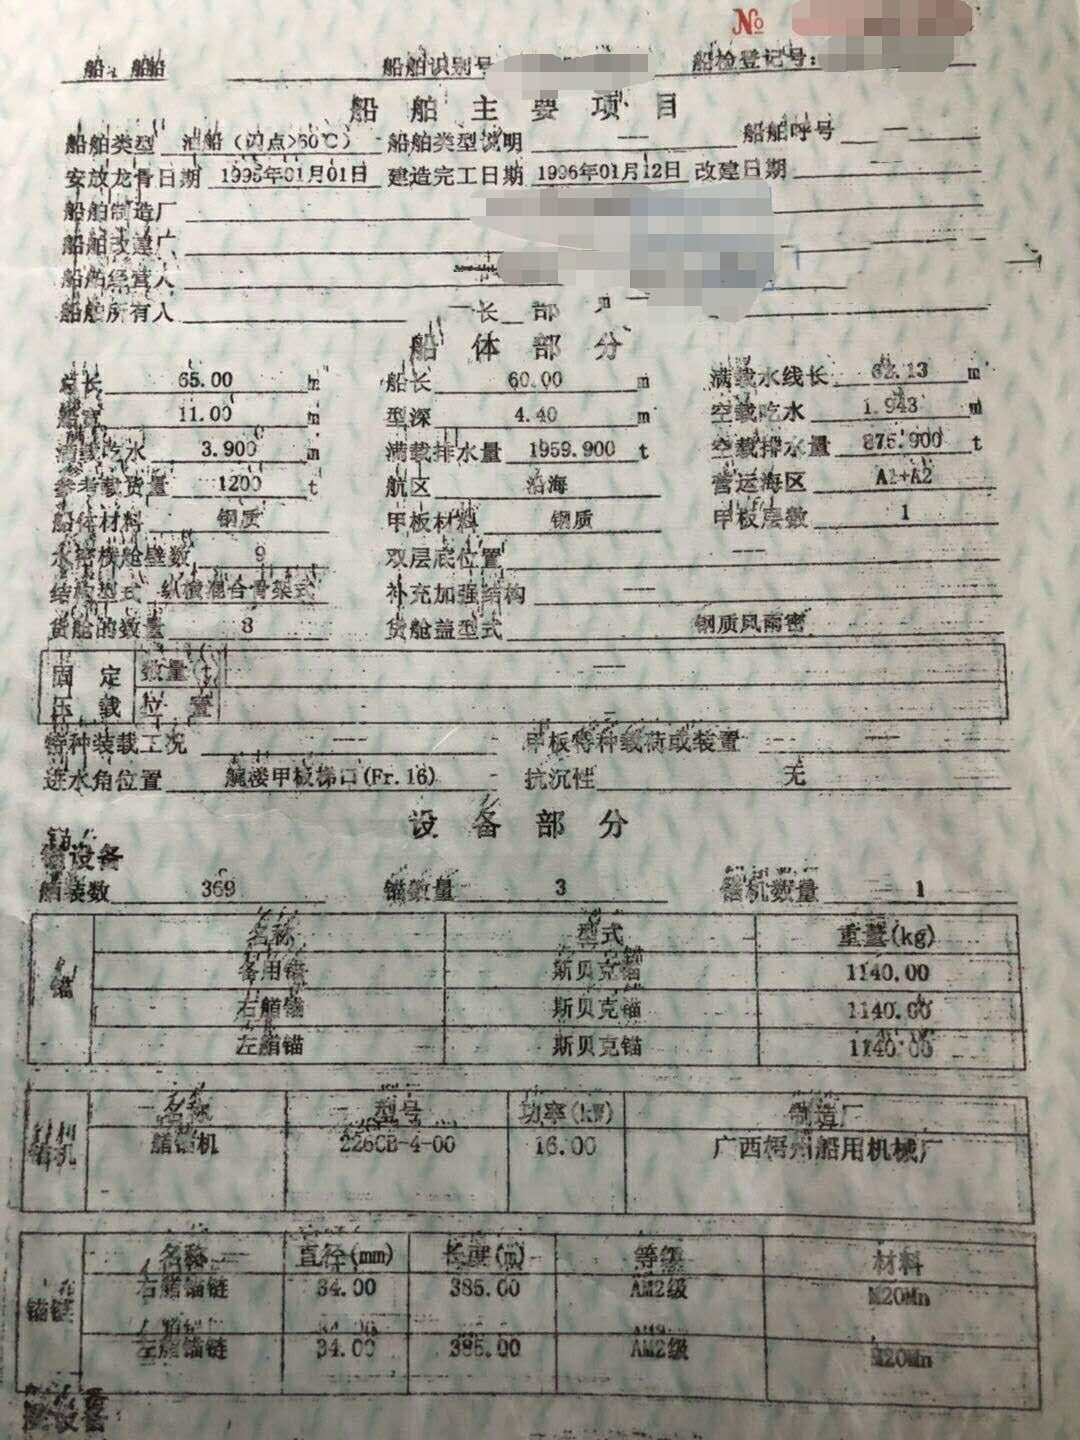 №
船舶识别号 船检登记号：
船舶主要项目
船舶类型 油船（闪点>60℃） 船舶类型说明 — 船舶呼号 —
安放龙骨日期 1995年01月01日 建造完工日期 1996年01月12日 改建日期
船舶制造厂
船舶改建厂
船舶经营人
船舶所有人
船体部分
总长 65.00 m 船长 60.00 m 满载水线长 62.13 m
船宽 11.00 m 型深 4.40 m 空载吃水 1.943 m
满载吃水 3.900 m 满载排水量 1959.900 t 空载排水量 875.900 t
参考载货量 1200 t 航区 沿海 营运海区 A1+A2
船体材料 钢质 甲板材料 钢质 甲板层数 1
水密横舱壁数 9 双层底位置 —
结构型式 纵横混合骨架式 补充加强结构 —
货舱的数量 8 货舱盖型式 钢质风雨密
固定 数量(t) —
压载 位置
特种装载工况 — 甲板特种载荷或装置 —
进水角位置 艉楼甲板梯口(Fr.16) 抗沉性 无
设备部分
锚设备
舾装数 369 锚数量 3 锚机数量 1
名称 型式 重量(kg)
锚 备用锚 斯贝克锚 1140.00
右艏锚 斯贝克锚 1140.00
左艏锚 斯贝克锚 1140.00
名称 型号 功率(kW) 制造厂
锚机 艏锚机 226CB-4-00 16.00 广西梧州船用机械厂
名称 直径(mm) 长度(m) 等级 材料
锚链 右艏锚链 34.00 385.00 AM2级 M20Mn
左艏锚链 34.00 385.00 AM2级 M20Mn